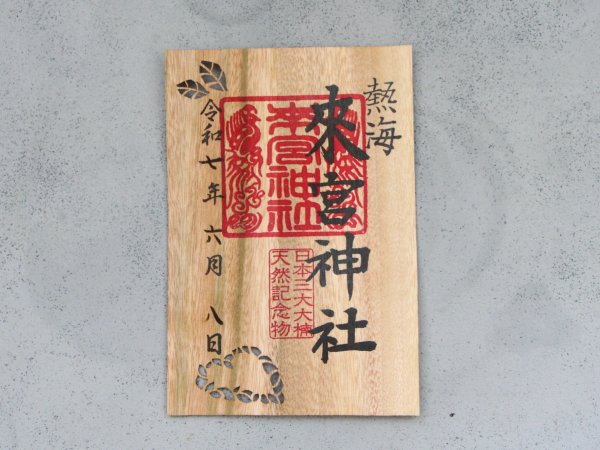 熱海
來宮神社
來宮神社
日本三大大楠
天然記念物
令和七年六月八日